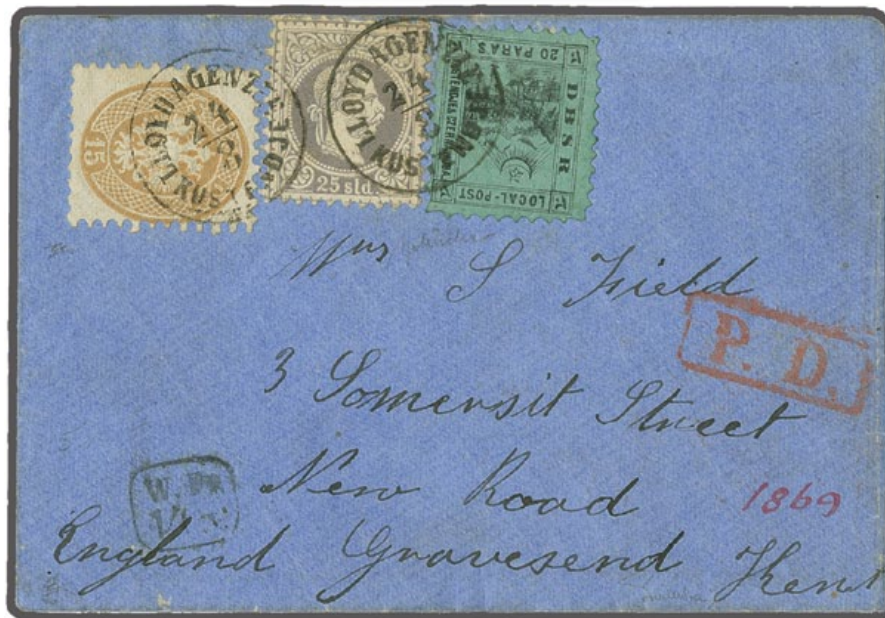 LLOYD AGENZIE
KUSTENDJE
LLOYD AGENZIE
KUSTENDJE
15
25 sld.
20 PARAS
DBSR
LOCAL-POST
Mrs S Field
P. D.
3 Somersit Street
New Road
1869
England Gravesend Kent